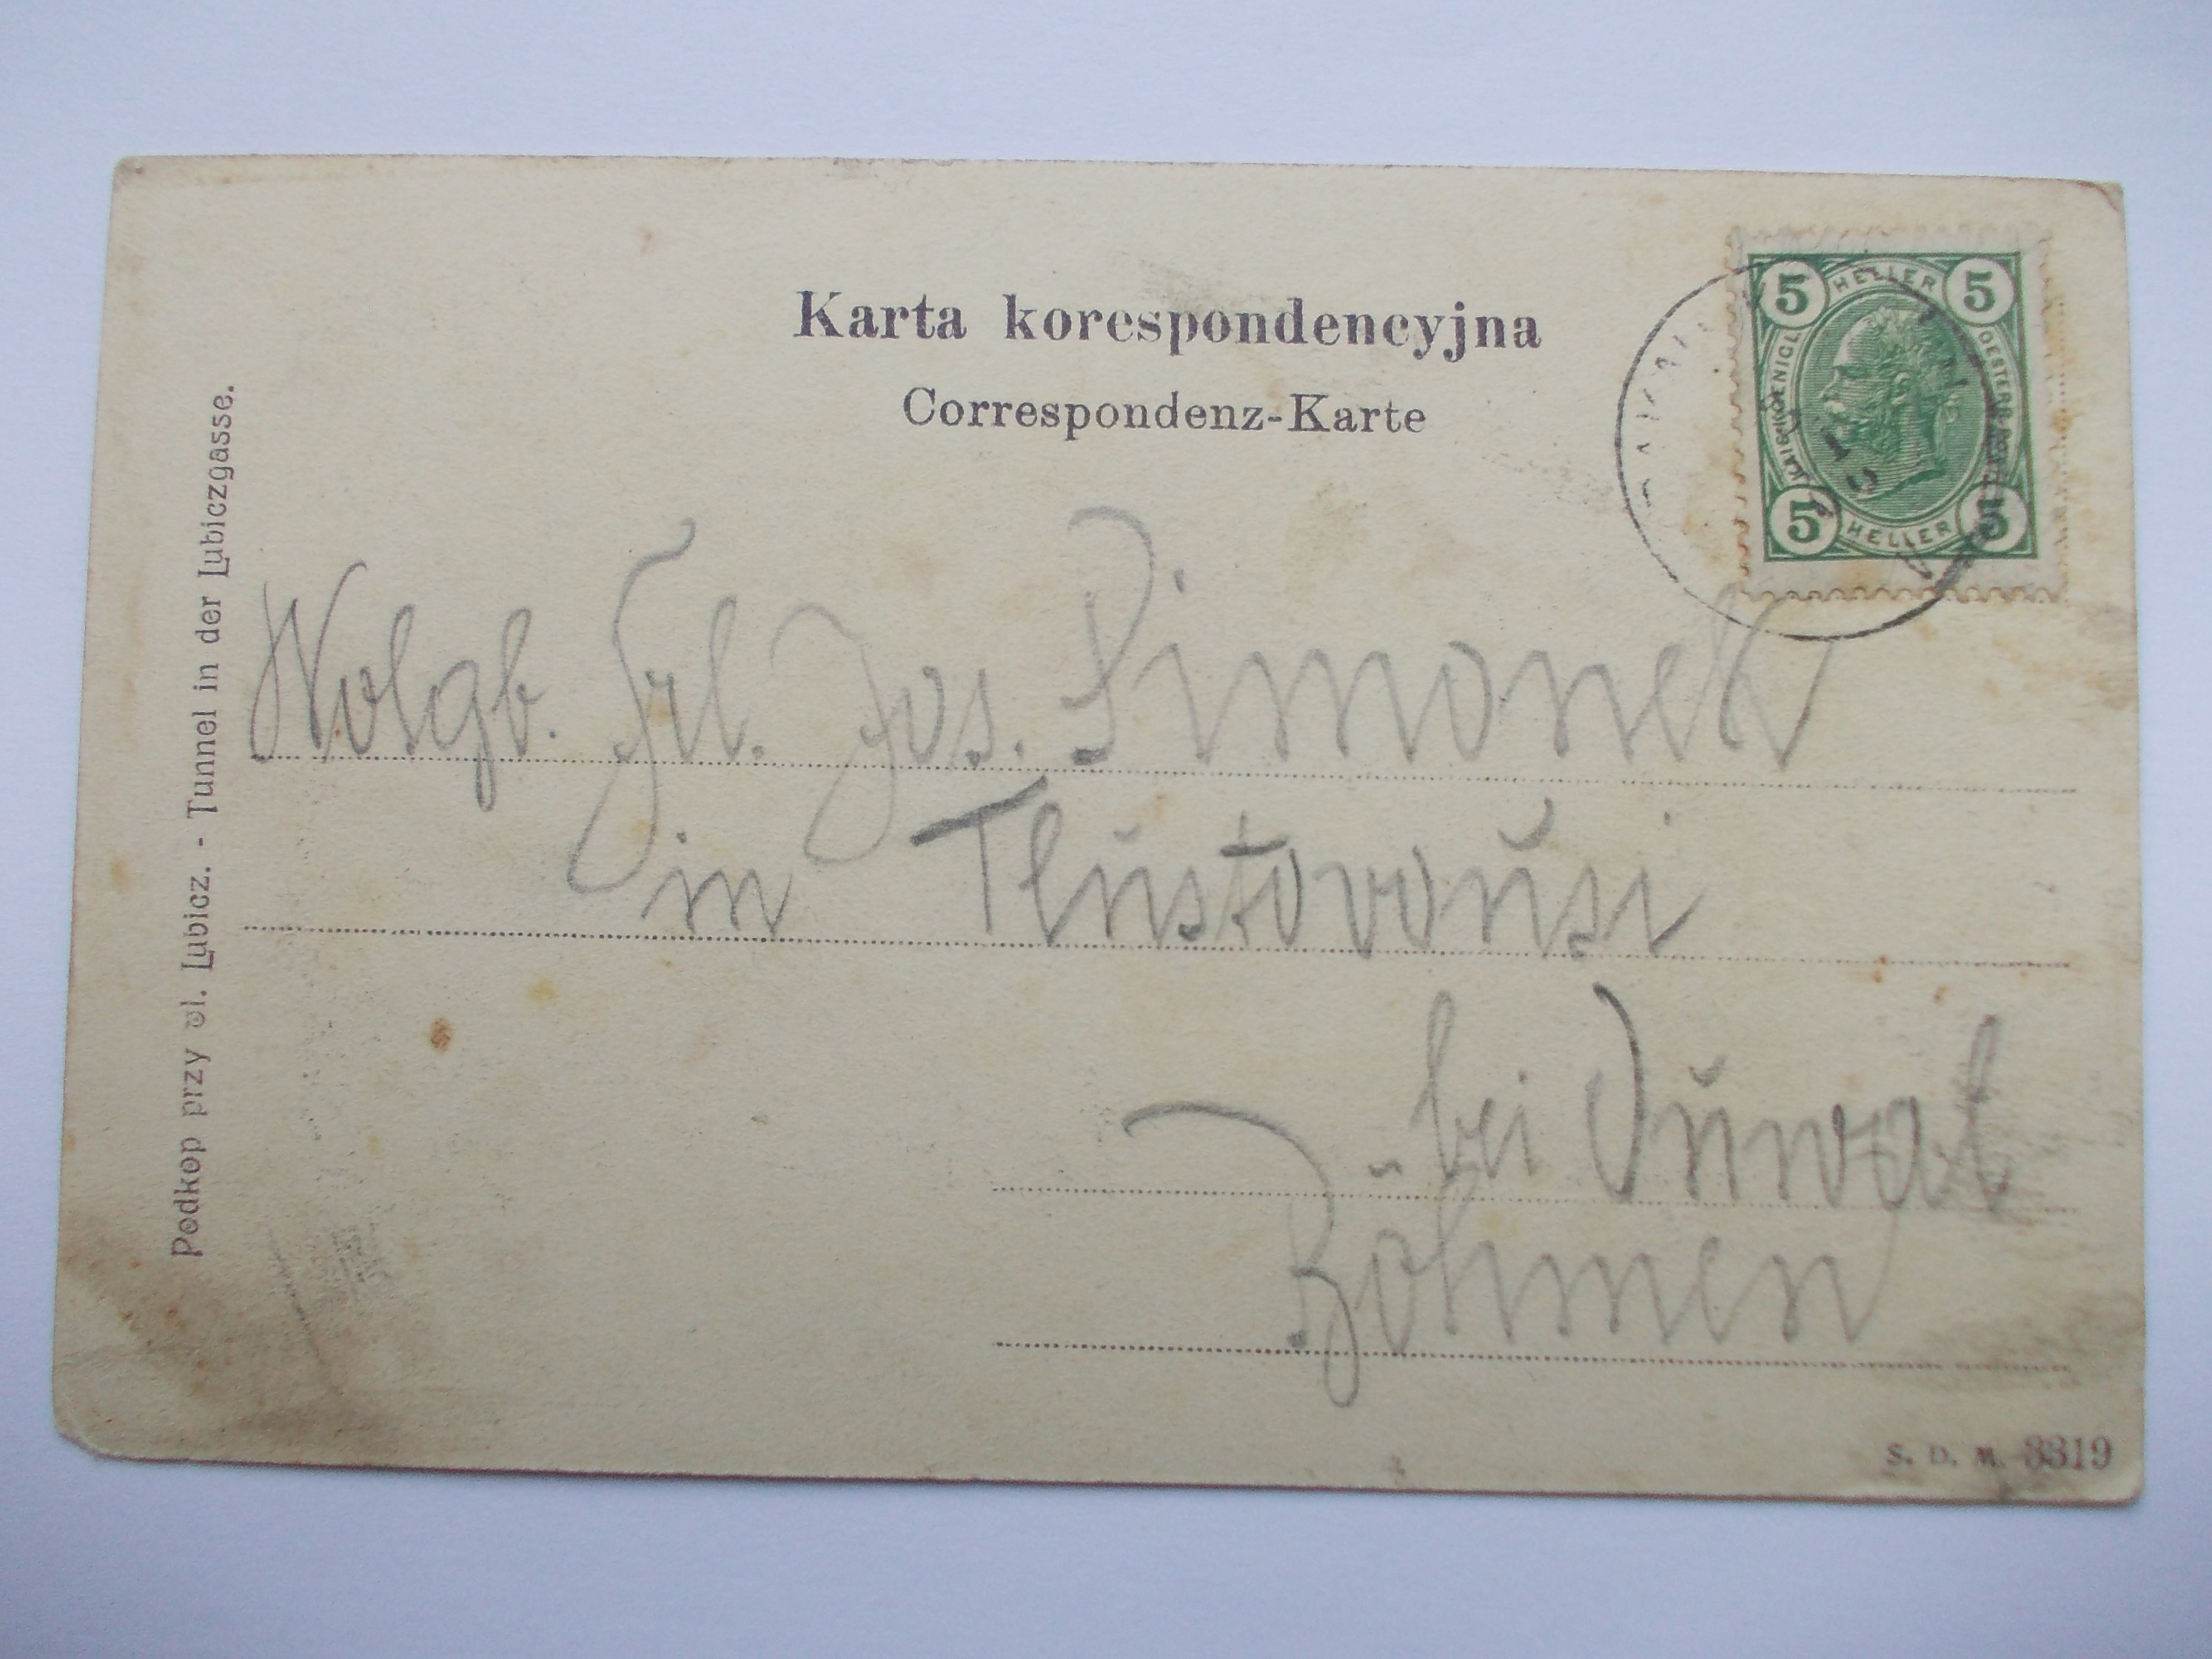 Karta korespondencyjna
Correspondenz-Karte
5 HELLER 5
KAISERL. KOENIGL. OESTERR. POST
5 HELLER 5
Podkop przy ul. Lubicz. - Tunnel in der Lubiczgasse.
Wolgb. Frl. Jos. Simonek
in Tlustovousi
bei Ouwal
Böhmen
S. D. M. 3319